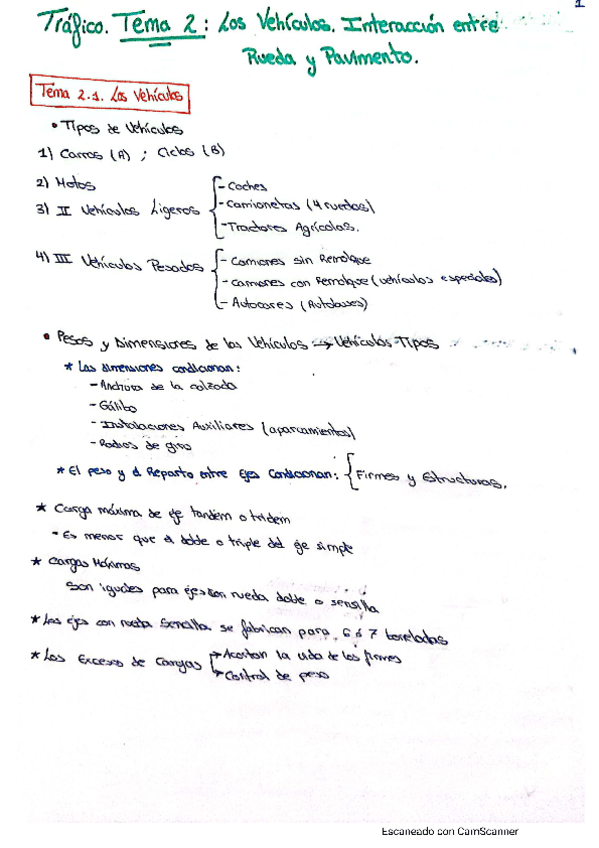 1
Tráfico. Tema 2: Los Vehículos. Interacción entre
Rueda y Pavimento.
Tema 2.1. Los Vehículos
• Tipos de Vehículos
1) Carros (A) ; Ciclos (B)
2) Motos
3) II Vehículos Ligeros
- Coches
- Camionetas (4 ruedas)
- Tractores Agrícolas.
4) III Vehículos Pesados
- Camiones sin Remolque
- Camiones con Remolque (vehículos especiales)
- Autocares (Autobuses)
• Pesos y Dimensiones de los Vehículos → Vehículos-Tipos
* Las dimensiones condicionan:
- Anchura de la calzada
- Gálibo
- Instalaciones Auxiliares (aparcamientos)
- Radios de giro
* El peso y el Reparto entre Ejes Condicionan: { Firmes y Estructuras.
* Carga máxima de eje tandem o tridem
- Es menor que el doble o triple del eje simple
* Cargas Máximas
Son iguales para ejes con rueda doble o sencilla
* Los ejes con rueda sencilla se fabrican para 6 ó 7 toneladas
* Los Excesos de Cargas
→ Acortan la vida de los firmes
→ Control de peso
Escaneado con CamScanner